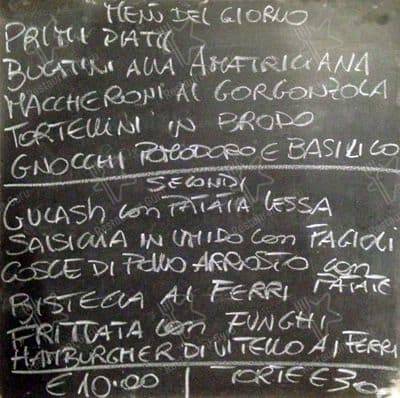 MENÙ DEL GIORNO
PRIMI PIATTI
BUCATINI ALLA AMATRICIANA
MACCHERONI AL GORGONZOLA
TORTELLINI IN BRODO
GNOCCHI POMODORO E BASILICO
SECONDI
GULASH con PATATA LESSA
SALSICCIA IN UMIDO con FAGIOLI
COSCE DI POLLO ARROSTO con
PATATE
BISTECCA AI FERRI
FRITTATA con FUNGHI
HAMBURGHER DI VITELLO AI FERRI
€ 10.00 TORTE € 3.00